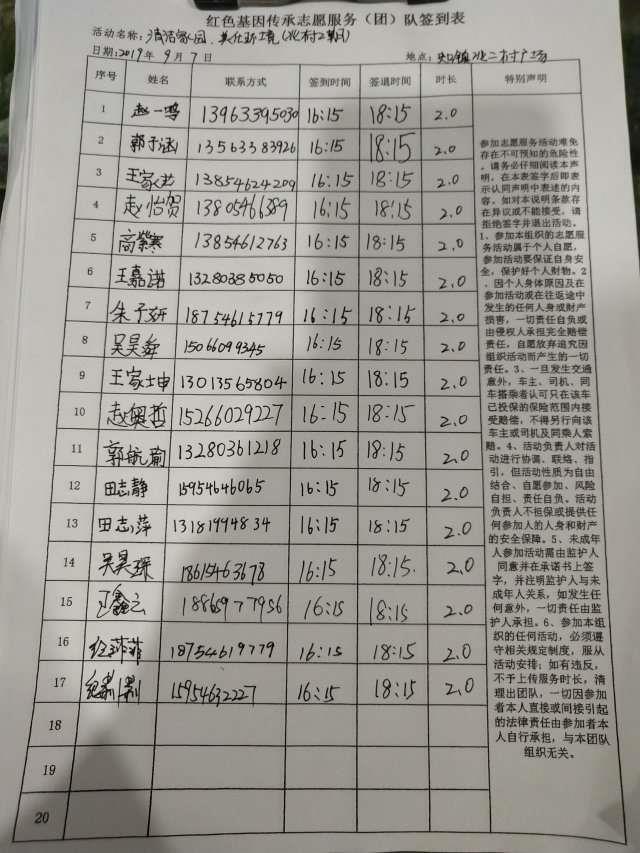 红色基因传承志愿服务（团）队签到表
活动名称：清洁家园，美化环境
日期：2019年 9月 7日 地点：
序号 姓名 联系方式 签到时间 签退时间 时长 特别声明
1 赵一鸣 13963395030 16:15 18:15 2.0
2 郭子涵 13563383926 16:15 18:15 2.0
3 13854624209 16:15 18:15 2.0
4 赵怡贺 13805466389 16:15 18:15 2.0
5 高紫寒 13854612763 16:15 18:15 2.0
6 王嘉诺 13280385050 16:15 18:15 2.0
7 朱予妍 18754615779 16:15 18:15 2.0
8 吴昊舜 15066099345 16:15 18:15 2.0
9 王家坤 13013565804 16:15 18:15 2.0
10 赵奥哲 15266029227 16:15 18:15 2.0
11 郭航瑜 13280361218 16:15 18:15 2.0
12 田志静 15954646065 16:15 18:15 2.0
13 田志萍 13181994834 16:15 18:15 2.0
14 吴昊琛 18615463678 16:15 18:15 2.0
15 18865977956 16:15 18:15 2.0
16 18754619779 16:15 18:15 2.0
17 15954632227 16:15 18:15 2.0
18
19
20
参加志愿服务活动难免
存在不可预知的危险性，
请务必仔细阅读本声
明，在本表签字后即表
示认同声明中表述的的
内容，如对本说明条款存
在异议或不能接受，请
拒绝签字并退出活动。
1、参加本组织的志愿服
务活动属于个人自愿，
参加活动要保证自身安
全，保护好个人财物。2
、因个人身体原因及在
参加活动或在往返途中
发生的任何人身或财产
损害，一切责任自负或
由侵权人承担完全赔偿
责任，自愿放弃追究因
组织活动而产生的一切
责任。3、一旦发生交通
意外，车主、司机、同
车搭乘者认可只在该车
已投保的保险范围内接
受赔偿，不得另行向该
车主或司机及同乘人索
赔。4、活动负责人对活
动进行协调、联络、指
引，但活动性质为自由
结合、自愿参加、风险
自担、责任自负。活动
负责人不担保或提供任
何参加人的人身和财产
的安全保障。5、未成年
人参加活动需由监护人
同意并在承诺书上签
字，并注明监护人与未
成年人关系，如发生任
何意外，一切责任由监
护人承担。6、参加本组
织的任何活动，必须遵
守相关规定制度，服从
活动安排；如有违反，
不予上传服务时长，清
理出团队，一切因参加
者本人直接或间接引起
的法律责任由参加者本
人自行承担，与本团队
组织无关。